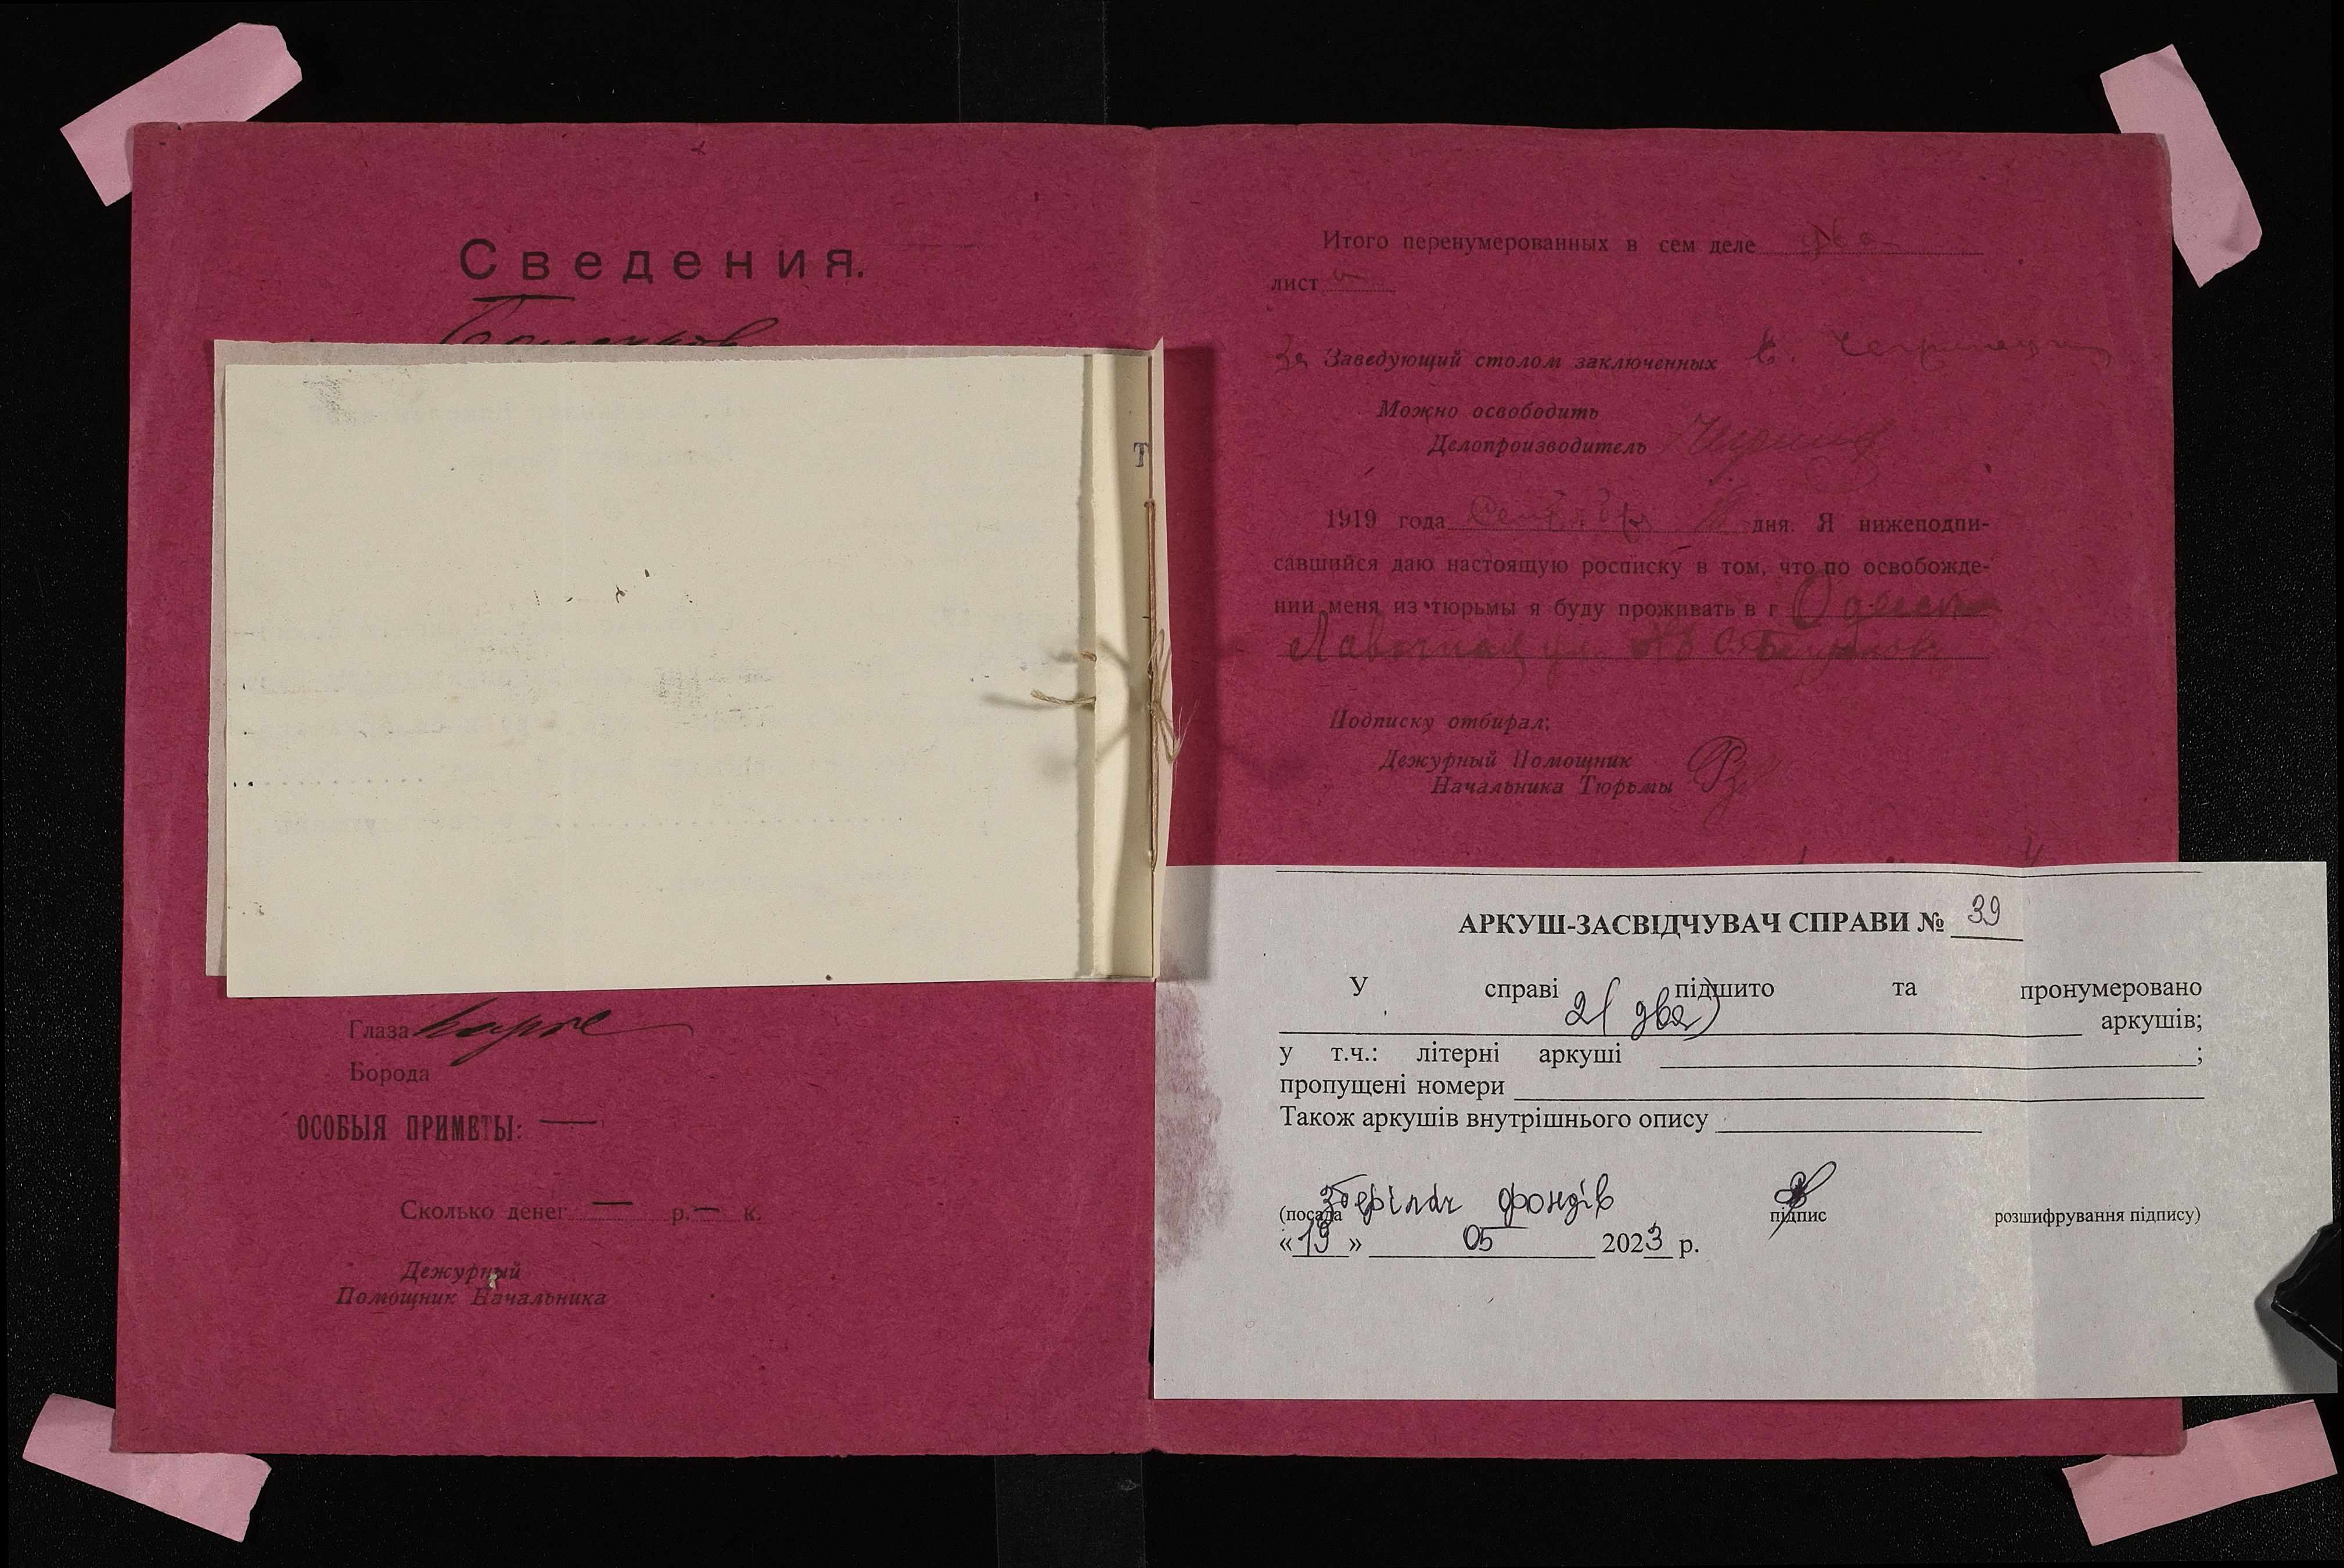 Сведения.
Глаза карие
Борода
ОСОБЫЯ ПРИМЕТЫ: —
Сколько денег — р. — к.
Дежурный
Помощник Начальника
Т
Итого перенумерованных в сем деле два
лист а
За Заведующий столом заключенных
Можно освободить
Делопроизводитель
1919 года Сентября дня. Я нижеподпи-
савшийся даю настоящую росписку в том, что по освобожде-
нии меня из тюрьмы я буду проживать в г Одессе
ул. №
Подписку отбирал:
Дежурный Помощник
Начальника Тюрьмы
АРКУШ-ЗАСВІДЧУВАЧ СПРАВИ № 39
У справі підшито та пронумеровано
2 (два) аркушів;
у т.ч.: літерні аркуші ;
пропущені номери
Також аркушів внутрішнього опису
Зберігач фондів
(посада підпис розшифрування підпису)
«19» 05 2023 р.